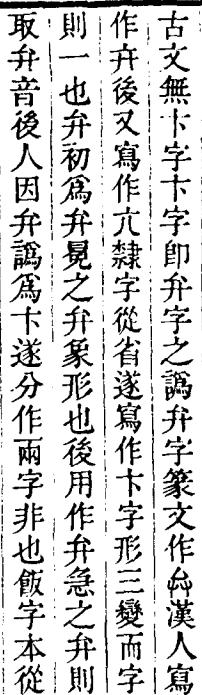 古文無卞字卞字即弁字之譌弁字篆文作𠑹漢人寫
作弁後又寫作亣隸字從省遂寫作卞字形三變而字
則一也弁初爲弁冕之弁象形也後用作弁急之弁則
取弁音後人因弁譌爲卞遂分作兩字非也飯字本從